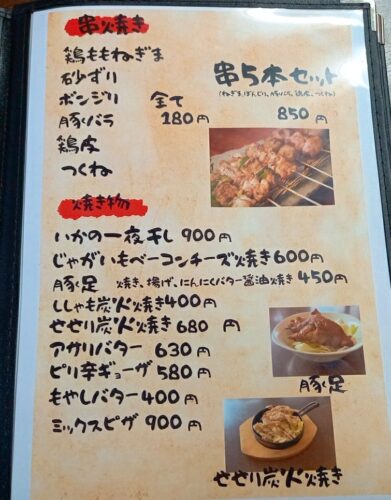 串焼き
鶏ももねぎま
砂ずり
ボンジリ
豚バラ
鶏皮
つくね
全て
180円
串5本セット
(ねぎま,ぼんじり,豚バラ,鶏皮,つくね)
850円
焼き物
いかの一夜干し 900円
じゃがいもベーコンチーズ焼き600円
豚足 焼き、揚げ、にんにくバター醤油焼き 450円
ししゃも炭火焼き400円
せせり炭火焼き680円
アサリバター 630円
ピリ辛ギョーザ 580円
もやしバター 400円
ミックスピザ 900円
豚足
せせり炭火焼き